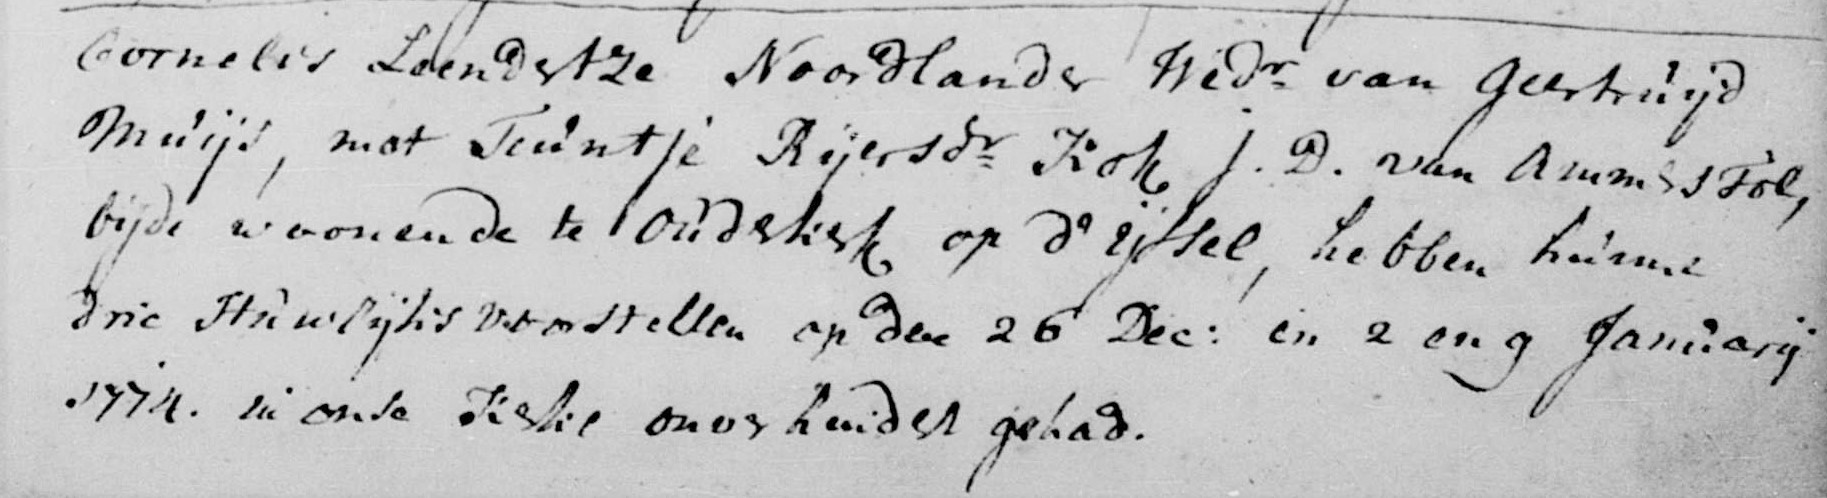 Cornelis Leendertze Noordlander Wedr van Geertruijd
Muijs, met Teuntje Rijersdr Kok J. D. van Ammerstol,
bijde woonende te Ouderkerk op d'ijssel, hebben hunne
drie Huwlijksvoorstellen op den 26 Dec: en 2 en 9 Januarij
1774. in onse Kerke onverhindert gehad.